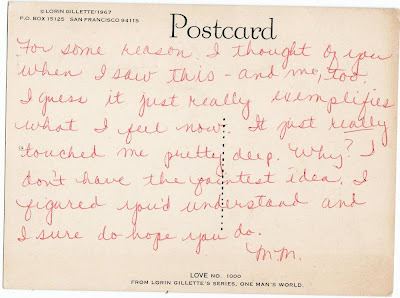 © LORIN GILLETTE/1967
P.O. BOX 15125 SAN FRANCISCO 94115
Postcard
For some reason I thought of you
when I saw this - and me, too.
I guess it just really exemplifies
what I feel now. It just really
touched me pretty deep. Why? I
don't have the faintest idea. I
figured you'd understand and
I sure do hope you do.
M.M.
LOVE NO. 1000
FROM LORIN GILLETTE'S SERIES, ONE MAN'S WORLD.